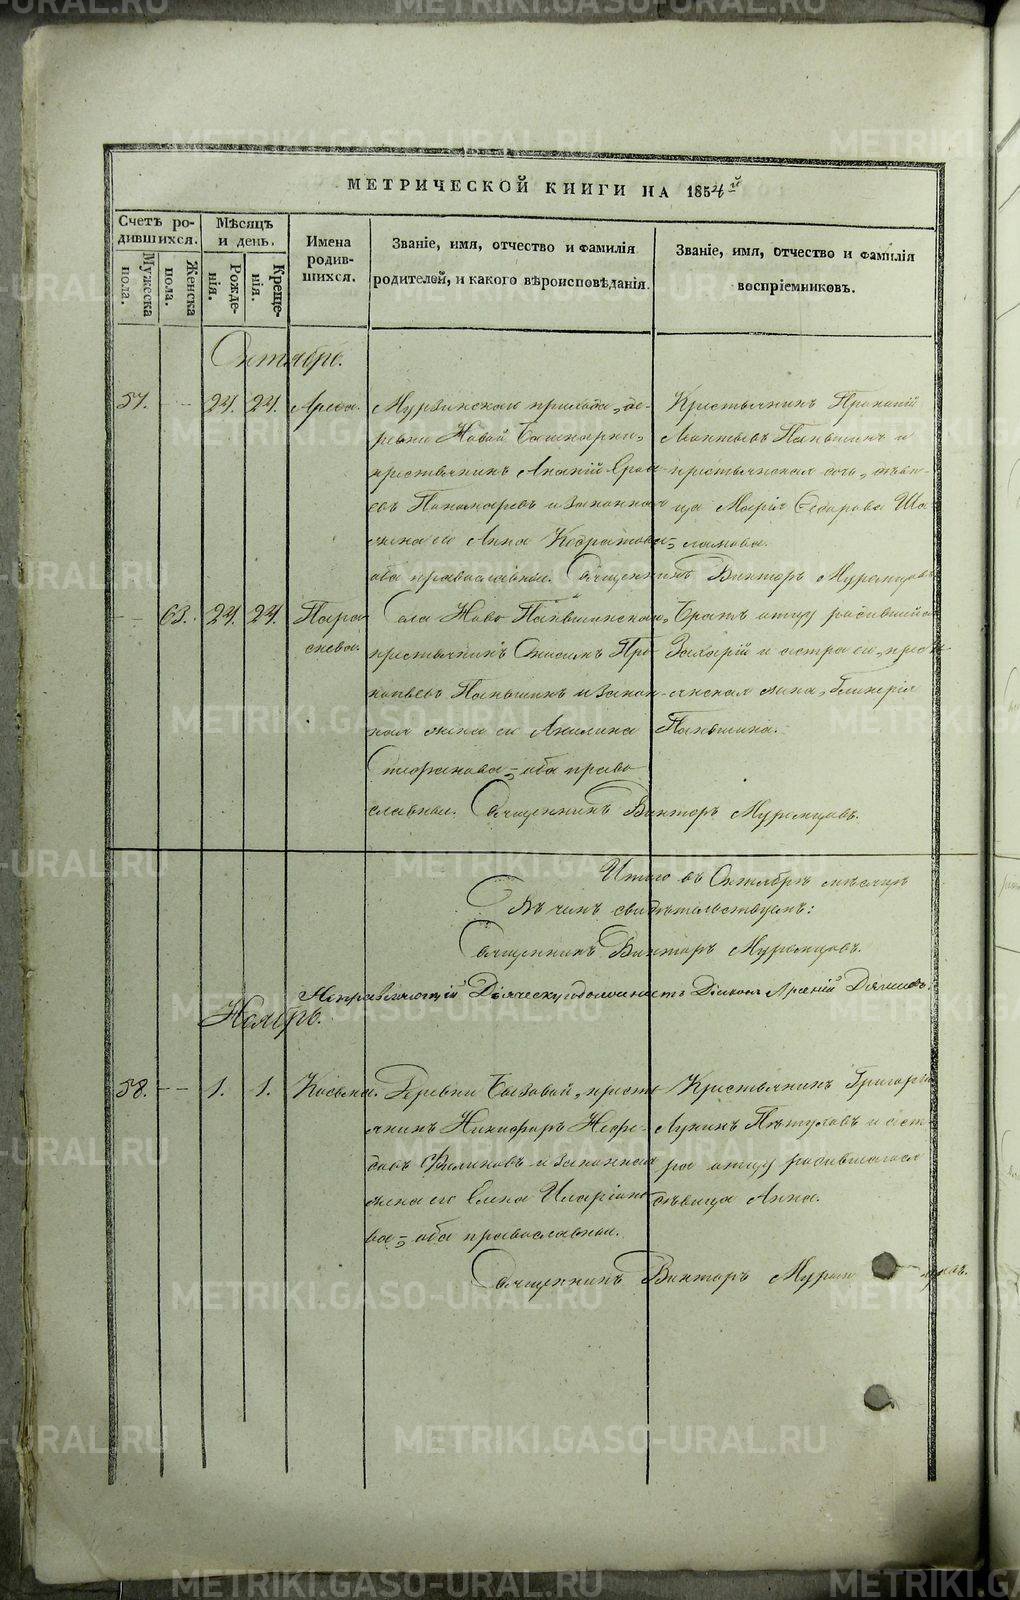 МЕТРИЧЕСКОЙ КНИГИ НА 1854й
Счетъ ро-
дившихся.
Мужеска
пола.
Женска
пола.
Мѣсяцъ
и день.
Рожде-
нія.
Креще-
нія.
Имена
родив-
шихся.
Званіе, имя, отчество и фамилія
родителей, и какого вѣроисповѣданія.
Званіе, имя, отчество и фамилія
воспріемниковъ.
Октябрь.
57.
24. 24.
Арефа.
Мурзинскаго прихода, де-
ревни Новой Башкарки,
крестьянинъ Ананій
Пономаревъ и законная
жена его Анна Кодратова,
оба православные. Священникъ Викторъ Муромцовъ
Крестьянинъ Прокопій
Леонтьевъ Паньшинъ и
крестьянская дочь, дѣви-
ца Марія Федорова Ша-
ламова.
63. 24. 24.
Пара-
скева.
Села Ново-Паньшинскаго,
крестьянинъ Онисимъ Про-
копьевъ Паньшинъ и закон-
ная жена его Акилина
Стефанова, оба право-
славные. Священникъ Викторъ Муромцовъ.
Братъ отцу родившейся
Захарій и сестра ея, крест-
янская жена, Гликерія
Паньшина.
Итого въ Октябрѣ мѣсяцѣ
Въ чемъ свидѣтельствуемъ:
Священникъ Викторъ Муромцовъ.
Исправляющій Дьяческую должность Діаконъ Арсеній
Ноябрь.
58. 1. 1.
Косьма.
Деревни Бызовой, кресть-
янинъ Никифоръ Нефе-
довъ Филиновъ и законная
жена его Елена Иларіоно-
ва, оба православные.
Священникъ Викторъ Муромцовъ.
Крестьянинъ Григорій
Лукинъ Пѣтуховъ и сест-
ра отцу родившагося
дѣвица Анна.
METRIKI.GASO-URAL.RU